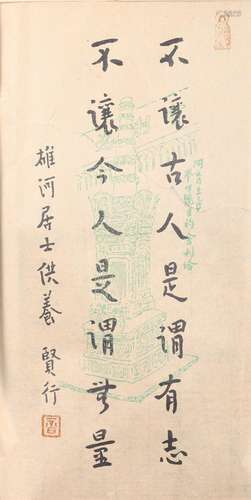 不讓古人是謂有志
不讓今人是謂無量
雄河居士供養 賢行